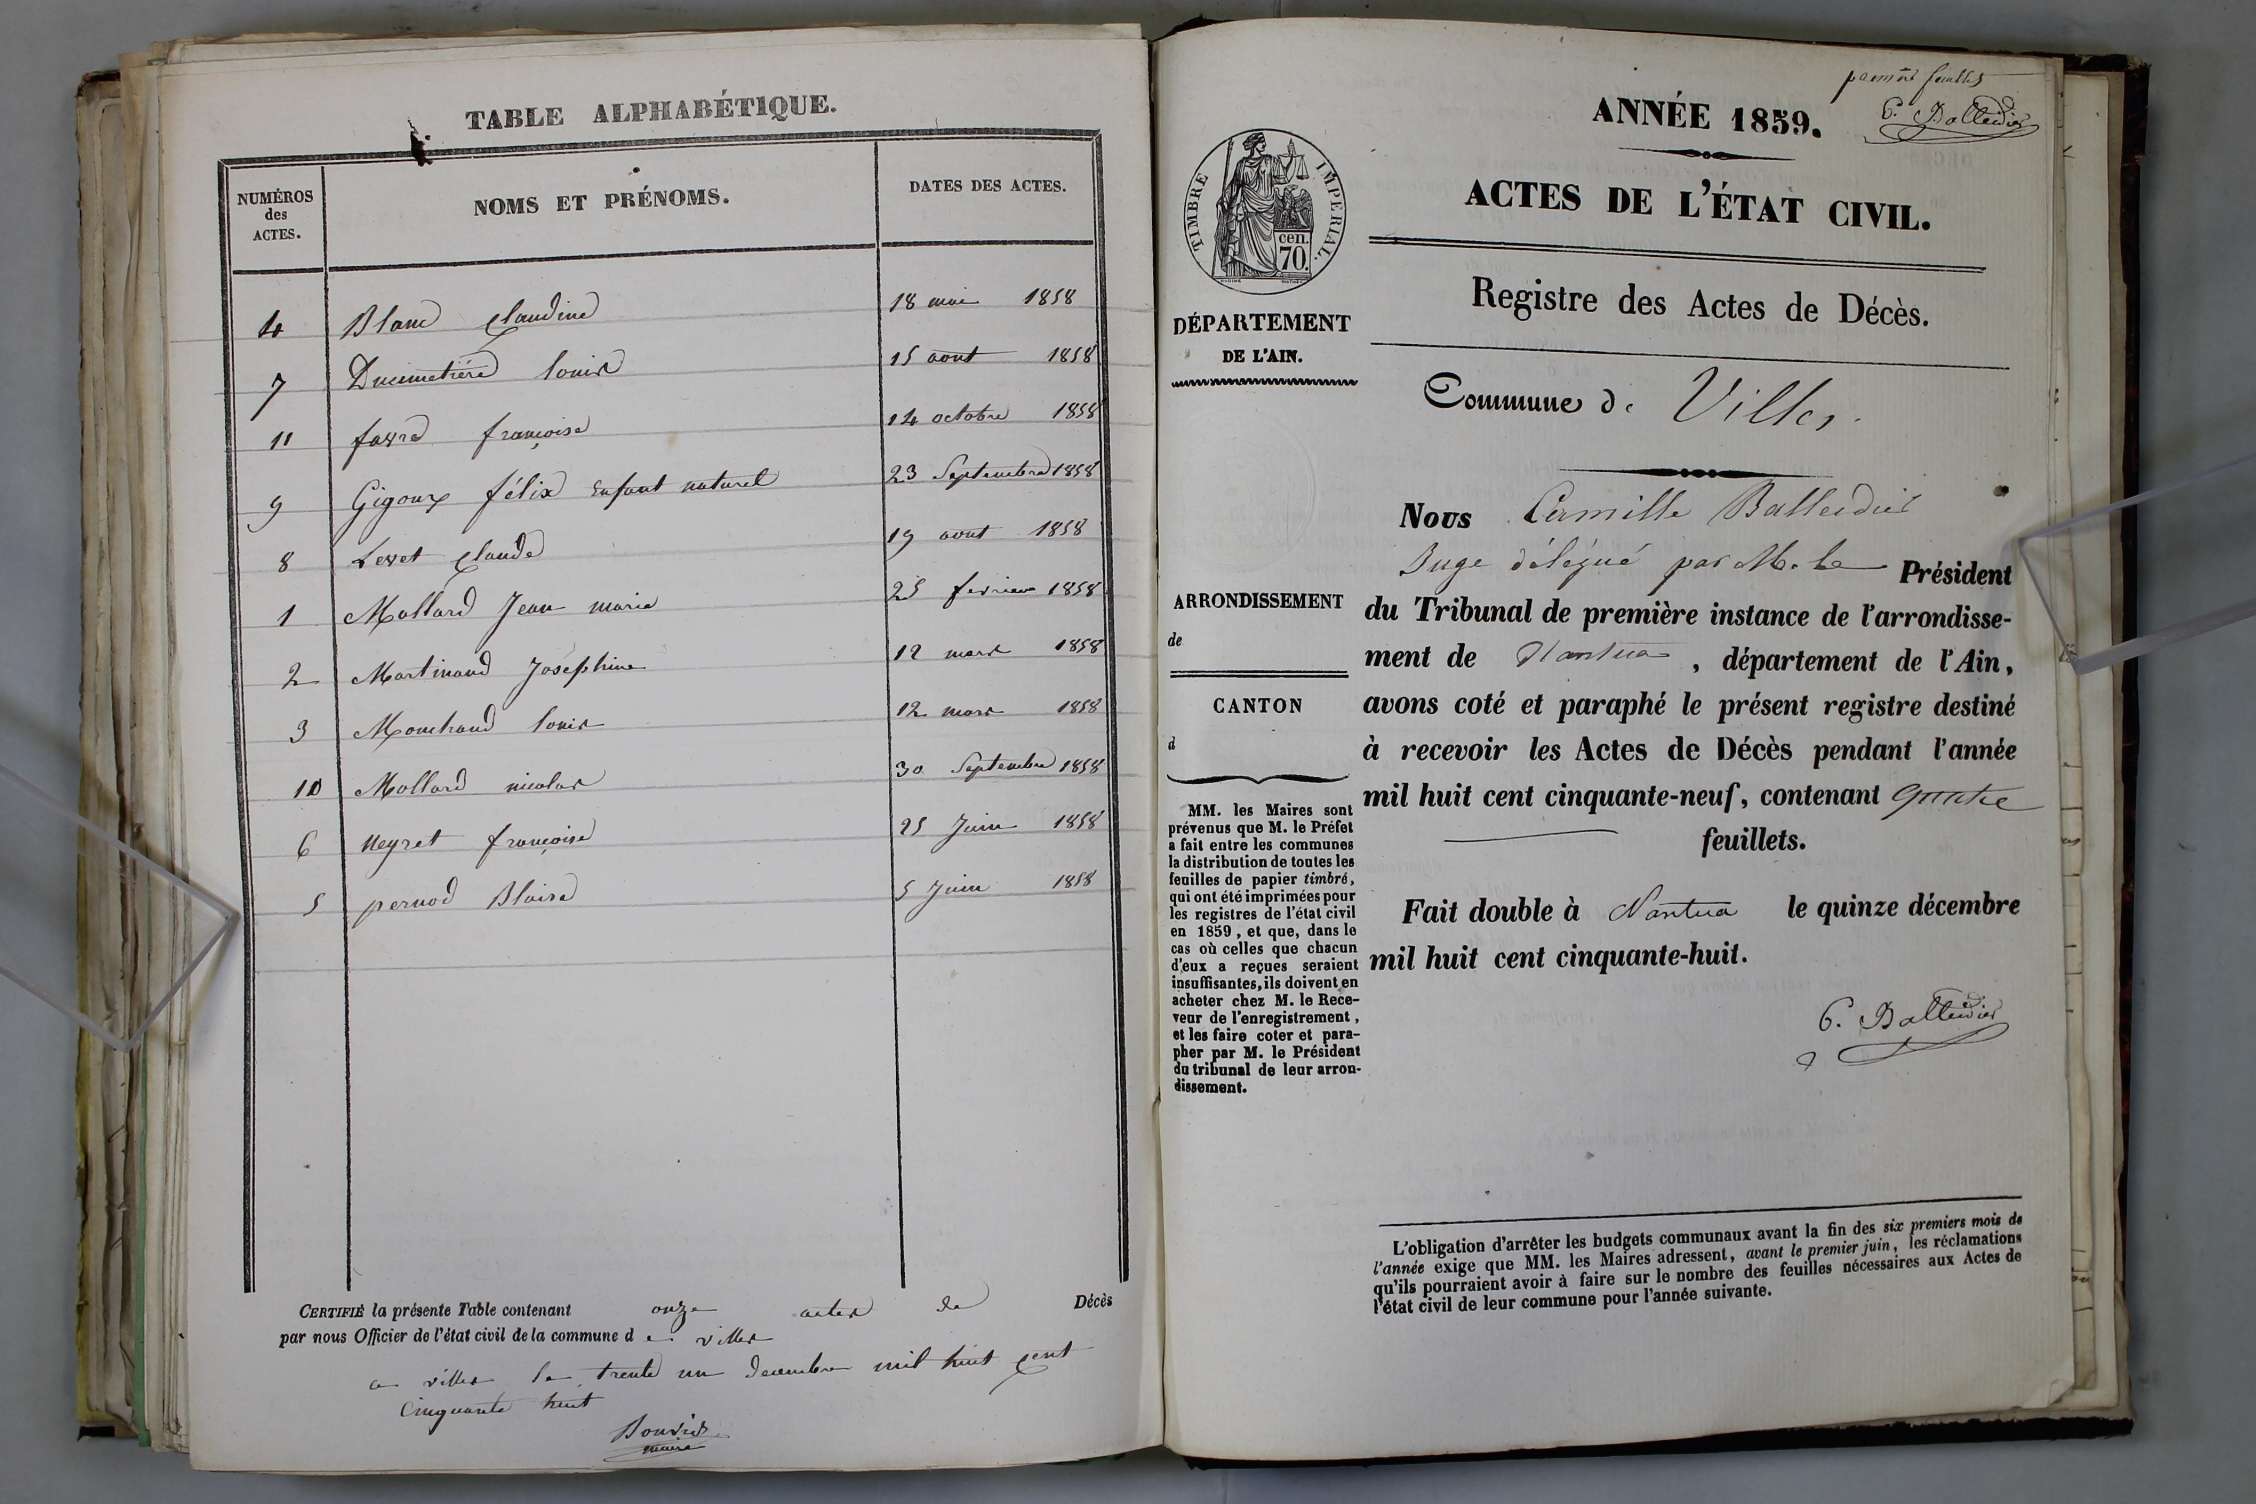 TABLE ALPHABÉTIQUE.
NUMÉROS
des
ACTES.
NOMS ET PRÉNOMS.
DATES DES ACTES.
4 Blanc Claudine 18 mai 1858
7 Ducimetière Louis 15 aout 1858
11 favre françoise 14 octobre 1858
9 Gigoux félix Enfant naturel 23 Septembre 1858
8 Levet Claude 19 aout 1858
1 Mollard Jean marie 25 fevrier 1858
2 Martinand Josephine 12 mars 1858
3 Mouchand louis 12 mars 1858
10 Mollard nicolas 30 Septembre 1858
6 Neyret françoise 25 Juin 1858
5 pernod Blaise 5 Juin 1858
CERTIFIÉ la présente Table contenant onze actes de Décès
par nous Officier de l'état civil de la commune de villes
a villes le trente un decembre mil huit cent
cinquante huit
Bouvier
maire
premier feuillet
C. Balleidier
ANNÉE 1859.
ACTES DE L'ÉTAT CIVIL.
TIMBRE IMPERIAL.
cen.
70.
Registre des Actes de Décès.
DÉPARTEMENT
DE L'AIN.
Commune de Villes.
Nous Camille Balleidier
Juge délégué par M. le Président
du Tribunal de première instance de l'arrondisse-
ment de Nantua, département de l'Ain,
avons coté et paraphé le présent registre destiné
à recevoir les Actes de Décès pendant l'année
mil huit cent cinquante-neuf, contenant quatre
feuillets.
Fait double à Nantua le quinze décembre
mil huit cent cinquante-huit.
C. Balleidier
ARRONDISSEMENT
de
CANTON
d
MM. les Maires sont
prévenus que M. le Préfet
a fait entre les communes
la distribution de toutes les
feuilles de papier timbré,
qui ont été imprimées pour
les registres de l'état civil
en 1859, et que, dans le
cas où celles que chacun
d'eux a reçues seraient
insuffisantes, ils doivent en
acheter chez M. le Rece-
veur de l'enregistrement,
et les faire coter et para-
pher par M. le Président
du tribunal de leur arron-
dissement.
L'obligation d'arrêter les budgets communaux avant la fin des six premiers mois de
l'année exige que MM. les Maires adressent, avant le premier juin, les réclamations
qu'ils pourraient avoir à faire sur le nombre des feuilles nécessaires aux Actes de
l'état civil de leur commune pour l'année suivante.